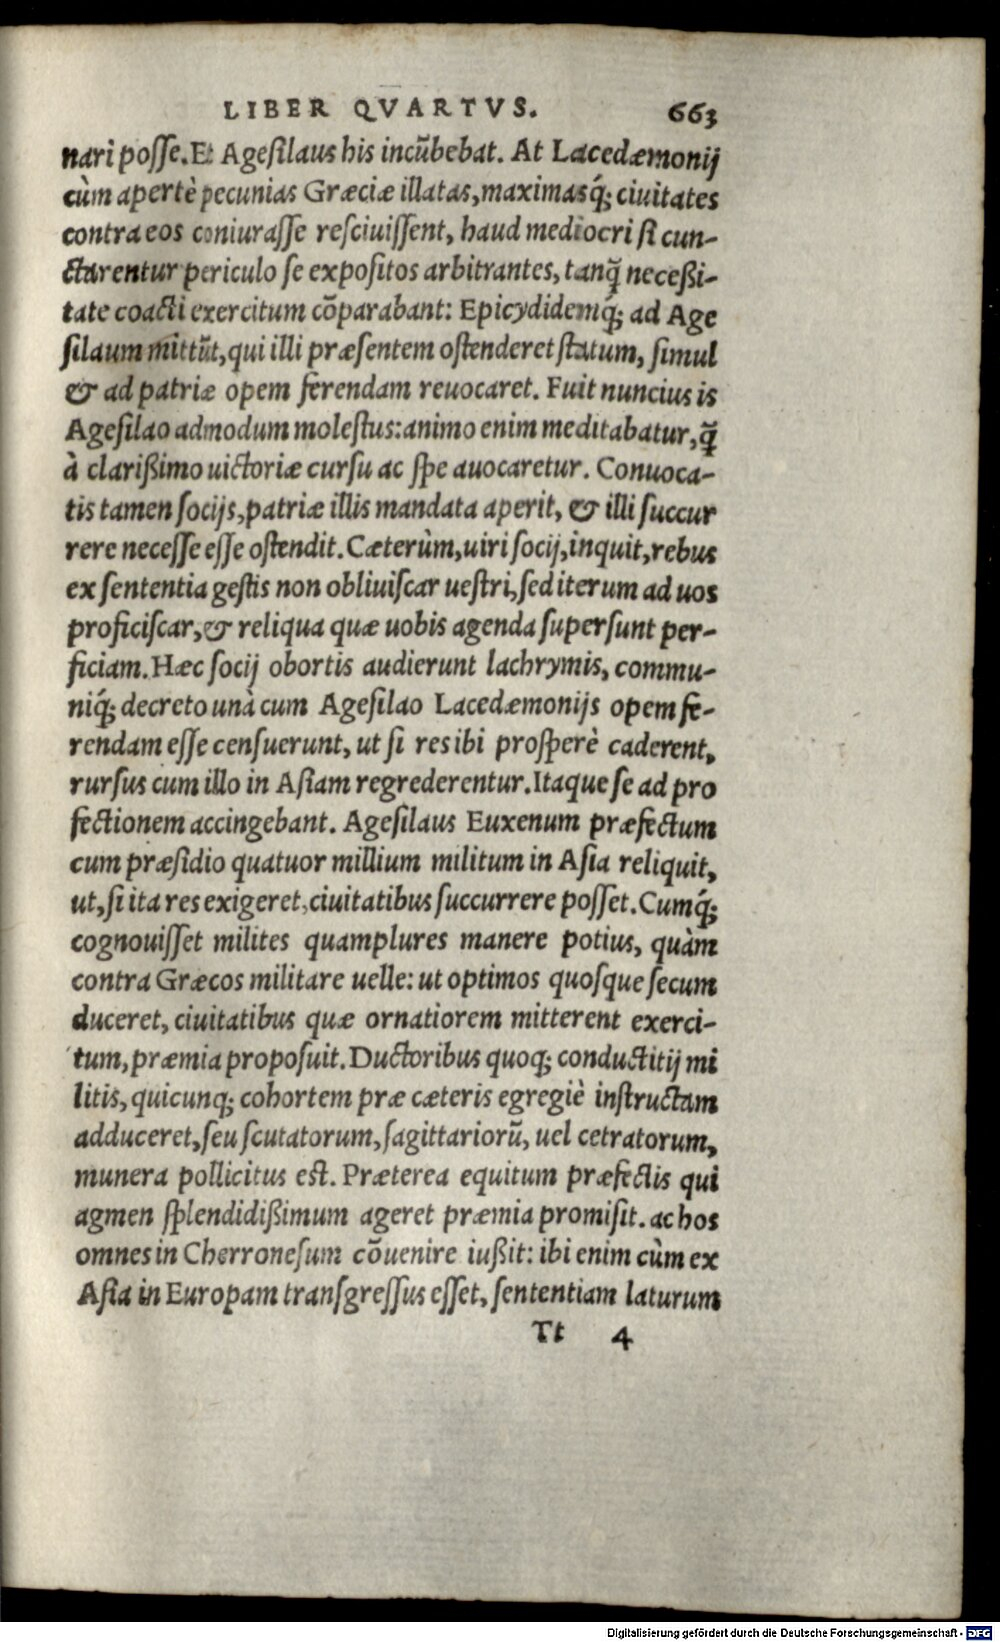 LIBER QVARTVS. 663
nari posse. Et Agesilaus his incũbebat. At Lacedæmonij
cùm apertè pecunias Græciæ illatas, maximasq́; ciuitates
contra eos coniurasse resciuissent, haud mediocri si cun-
ctarentur periculo se expositos arbitrantes, tanq̃ neceßi-
tate coacti exercitum cõparabant: Epicydidemq́; ad Age
silaum mittũt, qui illi præsentem ostenderet statum, simul
& ad patriæ opem ferendam reuocaret. Fuit nuncius is
Agesilao admodum molestus: animo enim meditabatur, q̃
à clarißimo uictoriæ cursu ac spe auocaretur. Conuoca-
tis tamen socijs, patriæ illis mandata aperit, & illi succur
rere necesse esse ostendit. Cæterùm, uiri socij, inquit, rebus
ex sententia gestis non obliuiscar uestri, sed iterum ad uos
proficiscar, & reliqua quæ uobis agenda supersunt per-
ficiam. Hæc socij obortis audierunt lachrymis, commu-
niq́; decreto unà cum Agesilao Lacedæmonijs opem fe-
rendam esse censuerunt, ut si res ibi prosperè caderent,
rursus cum illo in Asiam regrederentur. Itaque se ad pro
fectionem accingebant. Agesilaus Euxenum præfectum
cum præsidio quatuor millium militum in Asia reliquit,
ut, si ita res exigeret, ciuitatibus succurrere posset. Cumq́;
cognouisset milites quamplures manere potius, quàm
contra Græcos militare uelle: ut optimos quosque secum
duceret, ciuitatibus quæ ornatiorem mitterent exerci-
tum, præmia proposuit. Ductoribus quoq; conductitij mi
litis, quicunq; cohortem præ cæteris egregiè instructam
adduceret, seu scutatorum, sagittariorũ, uel cetratorum,
munera pollicitus est. Præterea equitum præfectis qui
agmen splendidißimum ageret præmia promisit. ac hos
omnes in Cherronesum cõuenire iußit: ibi enim cùm ex
Asia in Europam transgressus esset, sententiam laturum
Tt 4
Digitalisierung gefördert durch die Deutsche Forschungsgemeinschaft - DFG